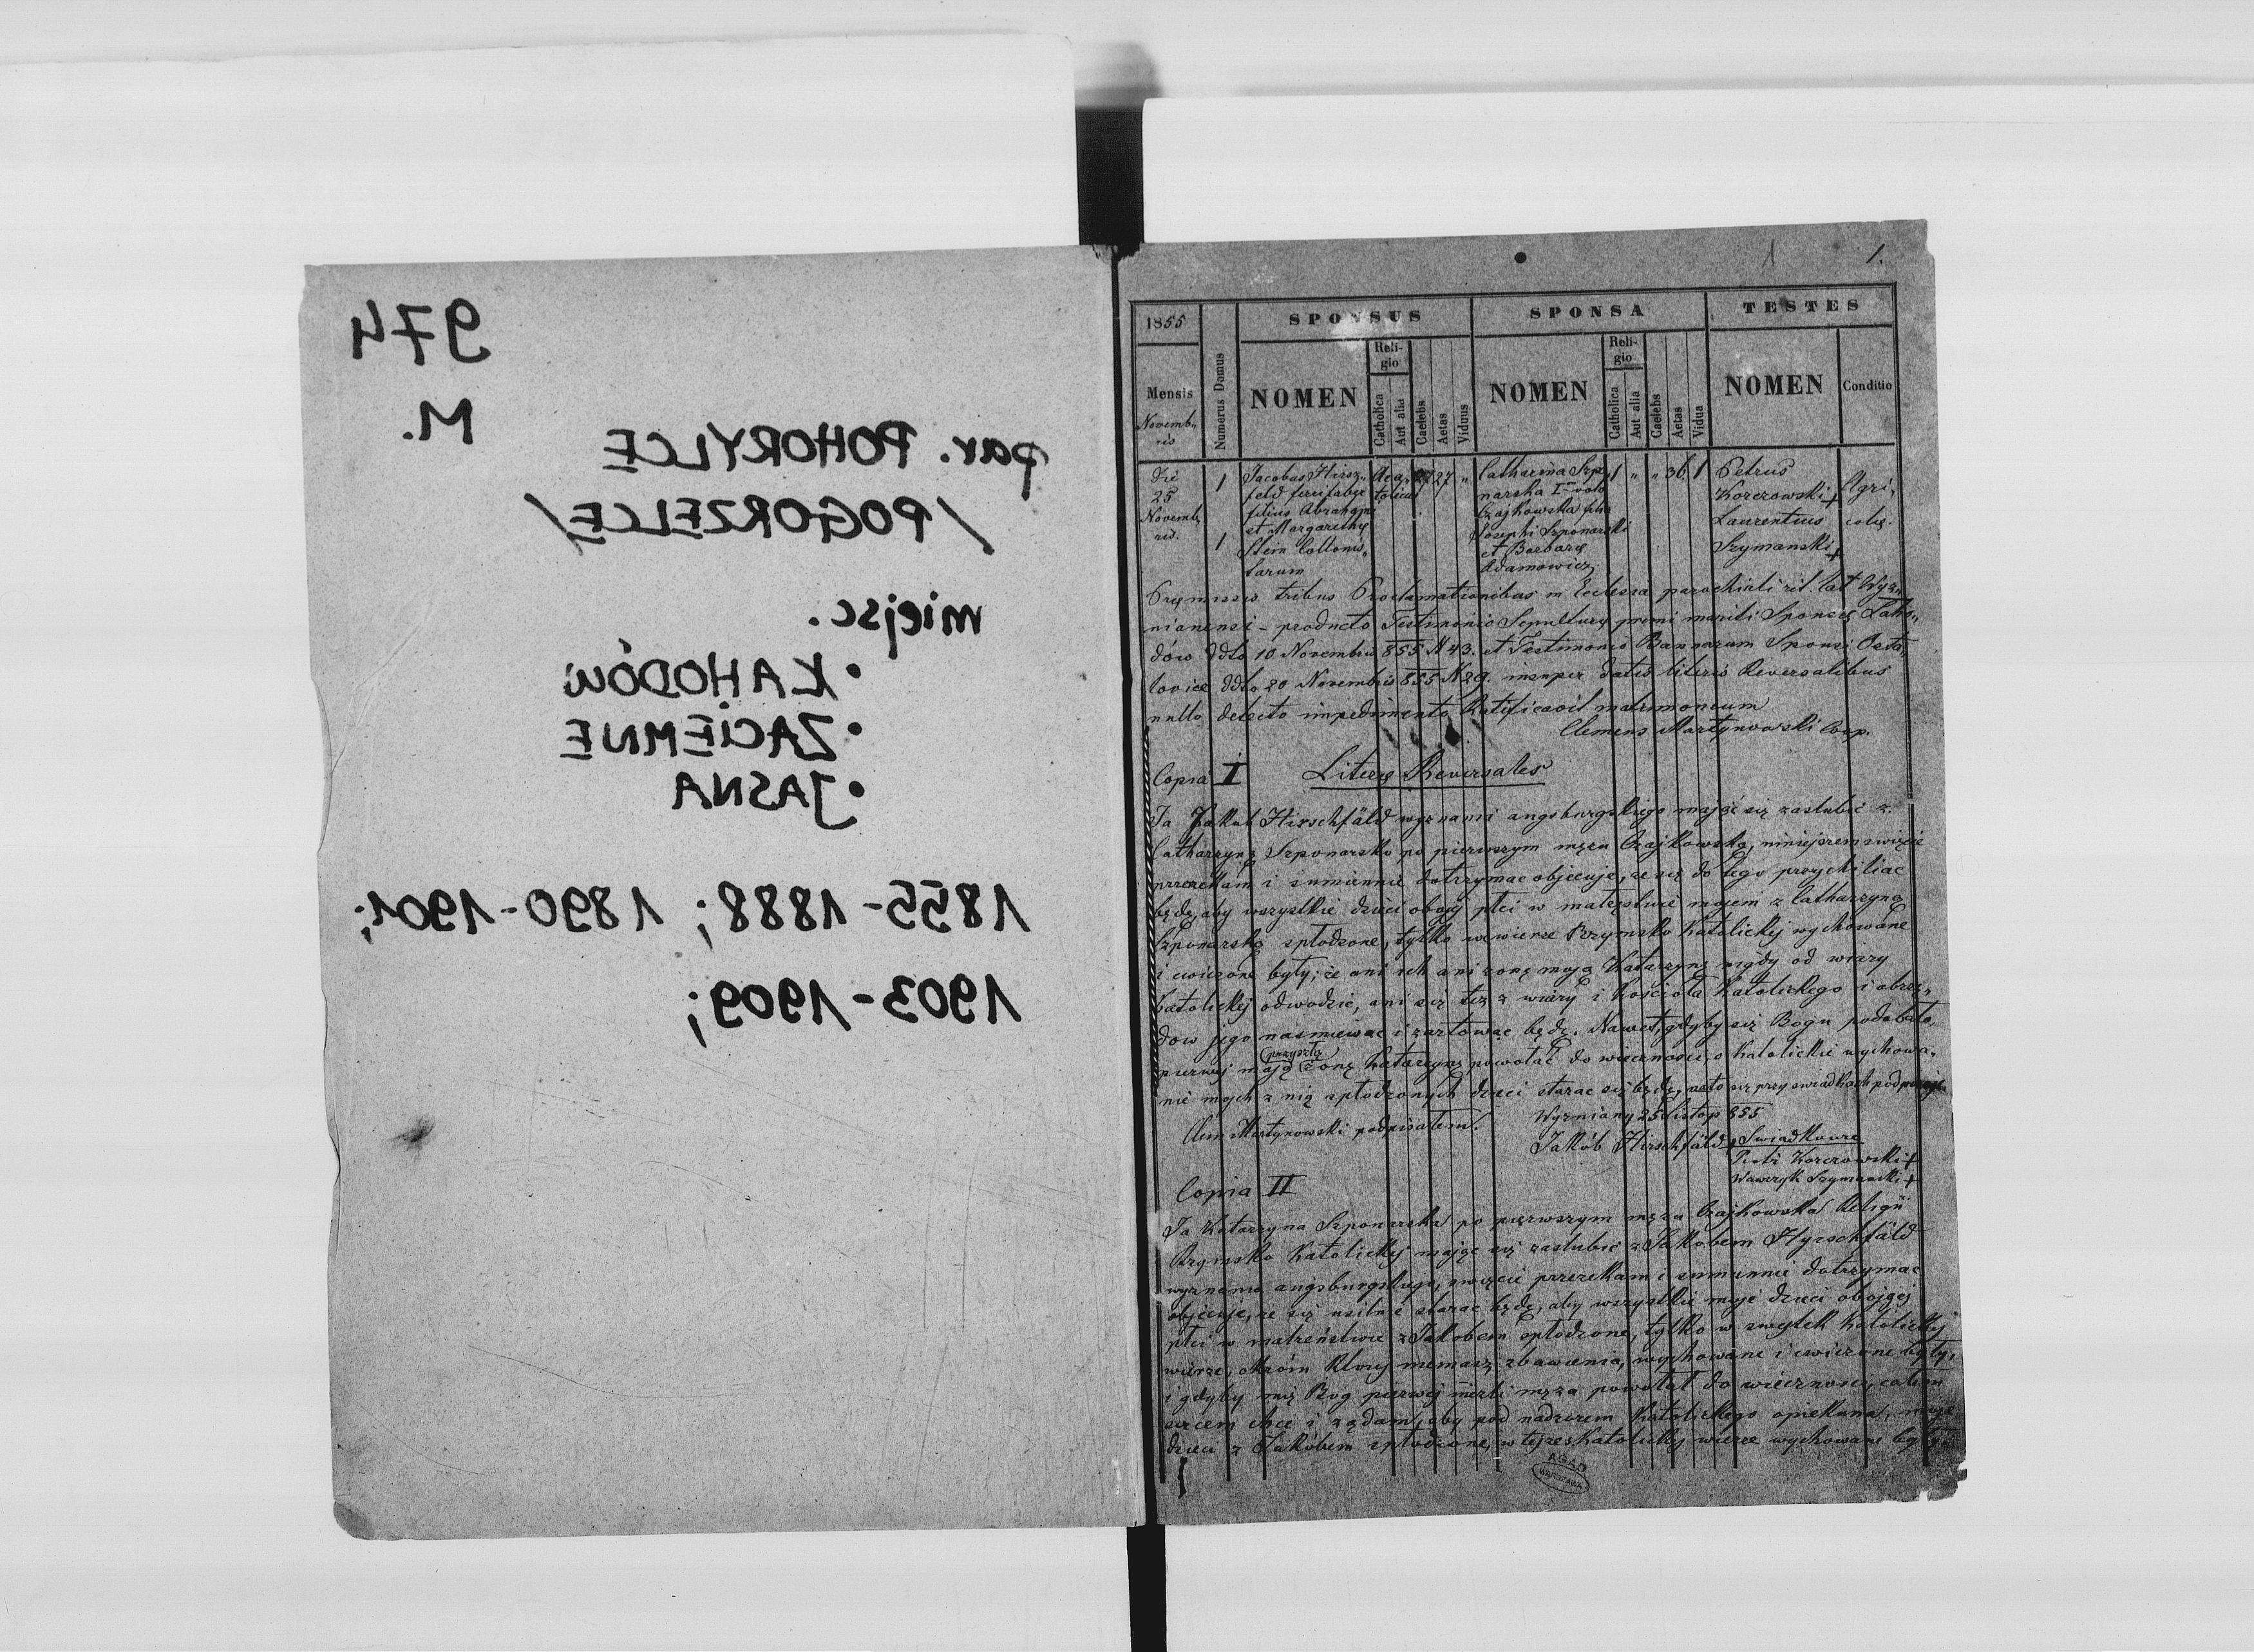 974
M.
par. POHORYLCE
/POGORZELCE/
miejsc.
• ŁAHODÓW
• ZACIEMNE
• JASNA
1855-1888; 1890-1901;
1903-1909;
1 1.
1855 SPONSUS SPONSA TESTES
Mensis Novembris Numerus Domus NOMEN Religio Catholica Aut alia Caelebs Aetas Viduus NOMEN Religio Catholica Aut alia Caelebs Aetas Vidua NOMEN Conditio
Die 25 Novembris.
1
1
Jacobus Hirsz-
feld
filius Abrahami
et Margarethę
Stein Collonis-
tarum
27 "
Catharina Szpo-
narska I voto
Czajkowska filia
Josephi Szponarski
et Barbarę
Adamowicz
1 " " 36 1
Petrus
Korczowski +
Laurentius
Szymanski +
Agri-
colę.
Pręmissis tribus Proclamationibus in Ecclesia parochiali rit. lat Wyż-
nianensi - producto Testimonio Sepulturę primi mariti Sponsę Łaho-
dów ddto 10 Novembris 855 N 43. et Testimonio Bannorum Sponsi
ddto 20 Novembris 855 N 29. insuper datis literis Reversalibus
nullo detecto impedimento Ratificavit matrimonium
Clemens Martynowski Coop.
Copia I Literę Reversales
Ja Jakub Hirschfäld wyznania augsburgskiego mając się zaslubić z
Catharzyną Szponarską po pierwszym mężu Czajkowską, niniejszem swięcie
przyrzekam i sumiennie dotrzymac obiecuje, ze się do tego przychiliac
będę, aby wszystkie dzieci obojej płci w małęstwie mojem z Catharzyną
Szponarską spłodzone, tylko w wierze Rzymsko Katolickiej wychowane
i cwiczone były; że ani ich ani żonę moją Katarzynę nigdy od wiary
Katolickiej odwodzić, ani się też z wiary i Kościoła Katolickiego i obrzę-
dow jego nasmiewac i żartowac będę. Nawet, gdyby się Bogu podobało
pierwej moją przyszłą żonę Katarzynę powołać do wieczności, o Katolickie wychowa-
nie moych z nią spłodzonych dzieci starac się będę, na to się przy swiadkach podpisuje
Wyżniany 25 listop 855
Clem Martynowski podpisałem.
Jakób Hirschfäld + Swiadkowie
Piotr Korczowski +
Wawrzyk Szymanski +
Copia II
Ja Katarzyna Szponarska po pierwszym mężu Czajkowska Religii
Rzymsko Katolickiej mając się zaslubić z Jakobem Hyrschfäld
wyznania augsburgskiego, swięcie przyrzekam i sumiennie dotrzymac
obiecuje, ze się usilnie starac będę, aby wszystkie moje dzieci obojgej
płci w małżeństwie z Jakobem spłodzone, tylko w swiętek Katolickiej
wierze, okróm Której niemasz zbawienia, wychowane i cwiczone były,
i gdyby mię Bog pierwej nieżli męża powołał do wieczności, całem
sercem chce i żądam, aby pod nadzorem Katolickiego opiekuna, moje
dzieci z Jakóbem spłodzone, w tejzes Katolickiej wierze wychowane były
AGAD
WARSZAWA